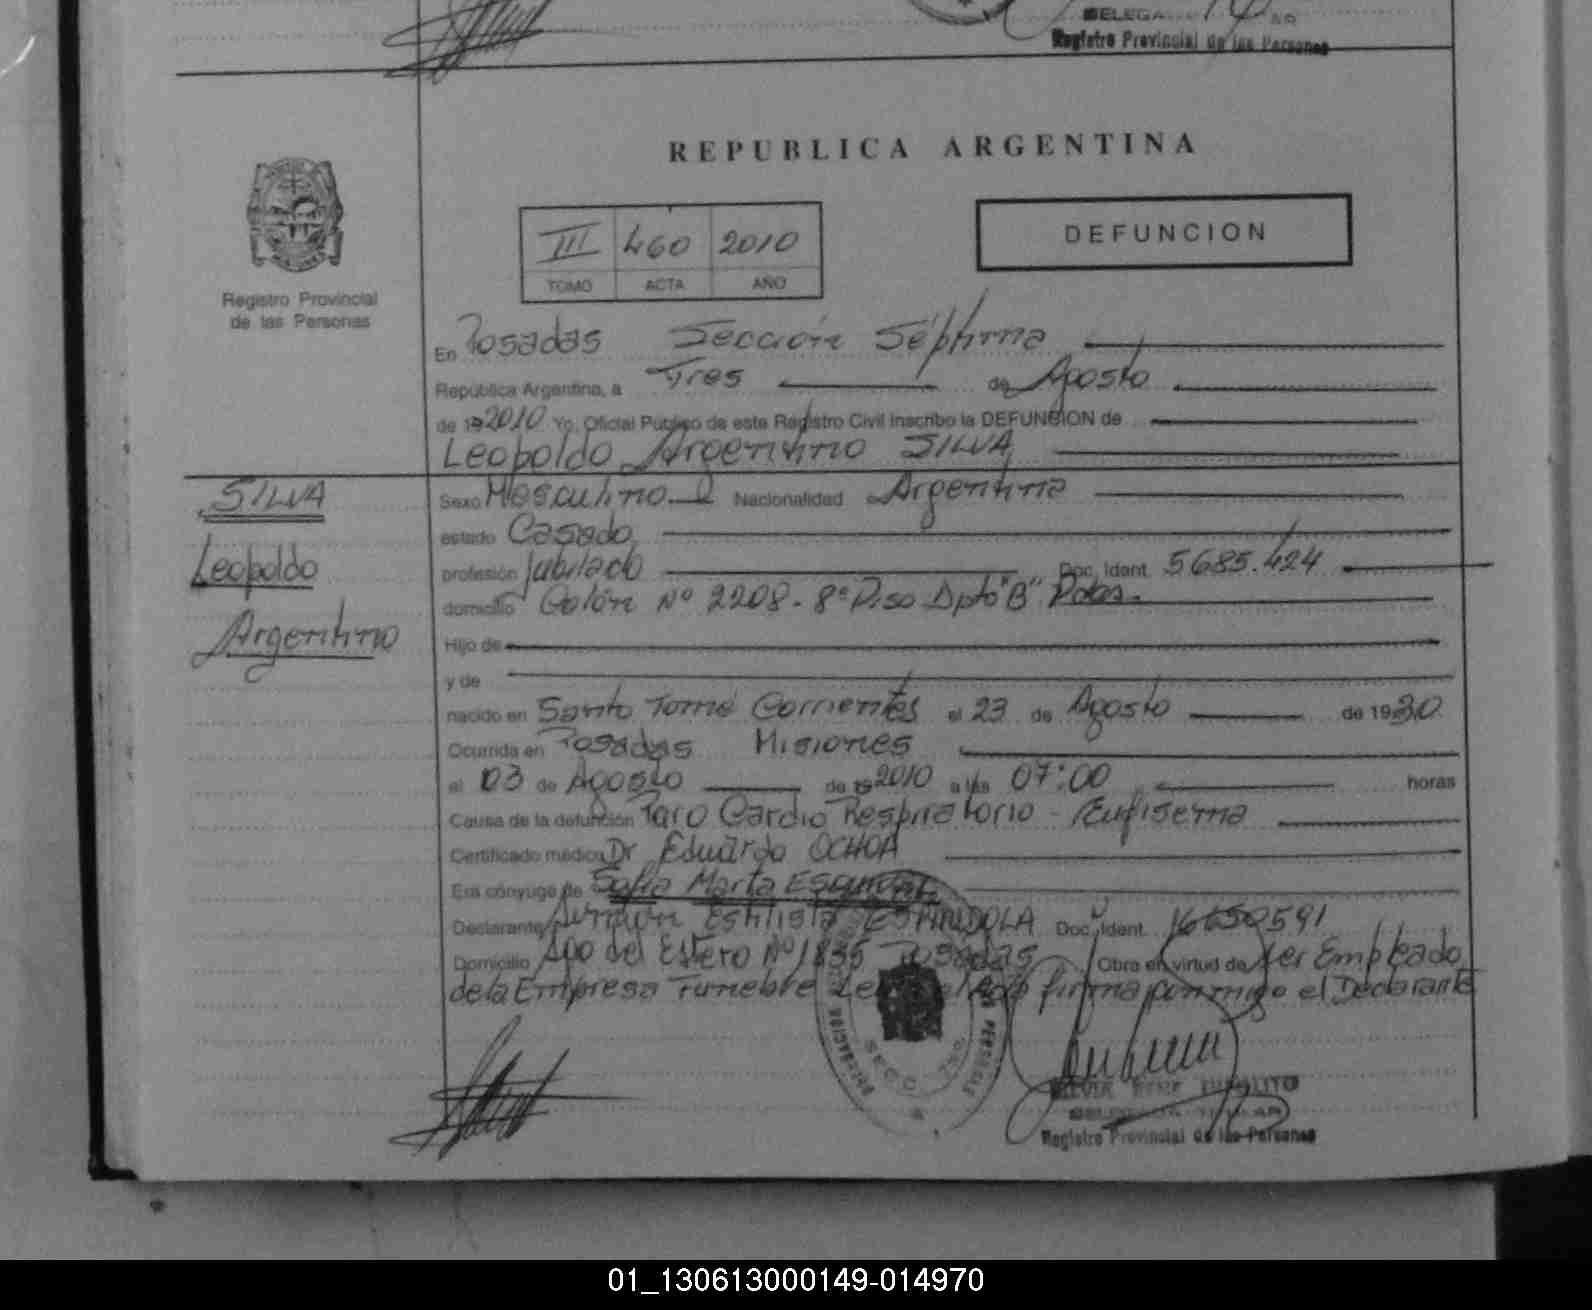 DELEGA AR
Registro Provincial de las Personas
REPUBLICA ARGENTINA
III 460 2010
TOMO ACTA AÑO
DEFUNCION
Registro Provincial
de las Personas
En Posadas Sección Séptima
República Argentina, a Tres de Agosto
de 19 2010 Yo, Oficial Público de este Registro Civil inscribo la DEFUNCION de
Leopoldo Argentino SILVA
SILVA
Leopoldo
Argentino
Sexo Masculino Nacionalidad Argentina
estado Casado
profesión Jubilado Doc. Ident. 5685.424
domicilio Colón Nº 2208 - 8º Piso Dpto "B" Pdas.
Hijo de
y de
nacido en Santo Tomé Corrientes el 23 de Agosto de 1930
Ocurrida en Posadas Misiones
el 03 de Agosto de 19 2010 a las 07:00 horas
Causa de la defunción Paro Cardio Respiratorio - Enfisema
Certificado médico Dr Eduardo OCHOA
Era cónyuge de Sofia Marta
Declarante ESPINDOLA Doc. Ident. 16650591
Domicilio Sgo del Estero Nº 1855 Posadas Obra en virtud de ser Empleado
de la Empresa Funebre firma conmigo el Declarante
SECC. 7
DELEGADA TITULAR
Registro Provincial de las Personas
01_130613000149-014970